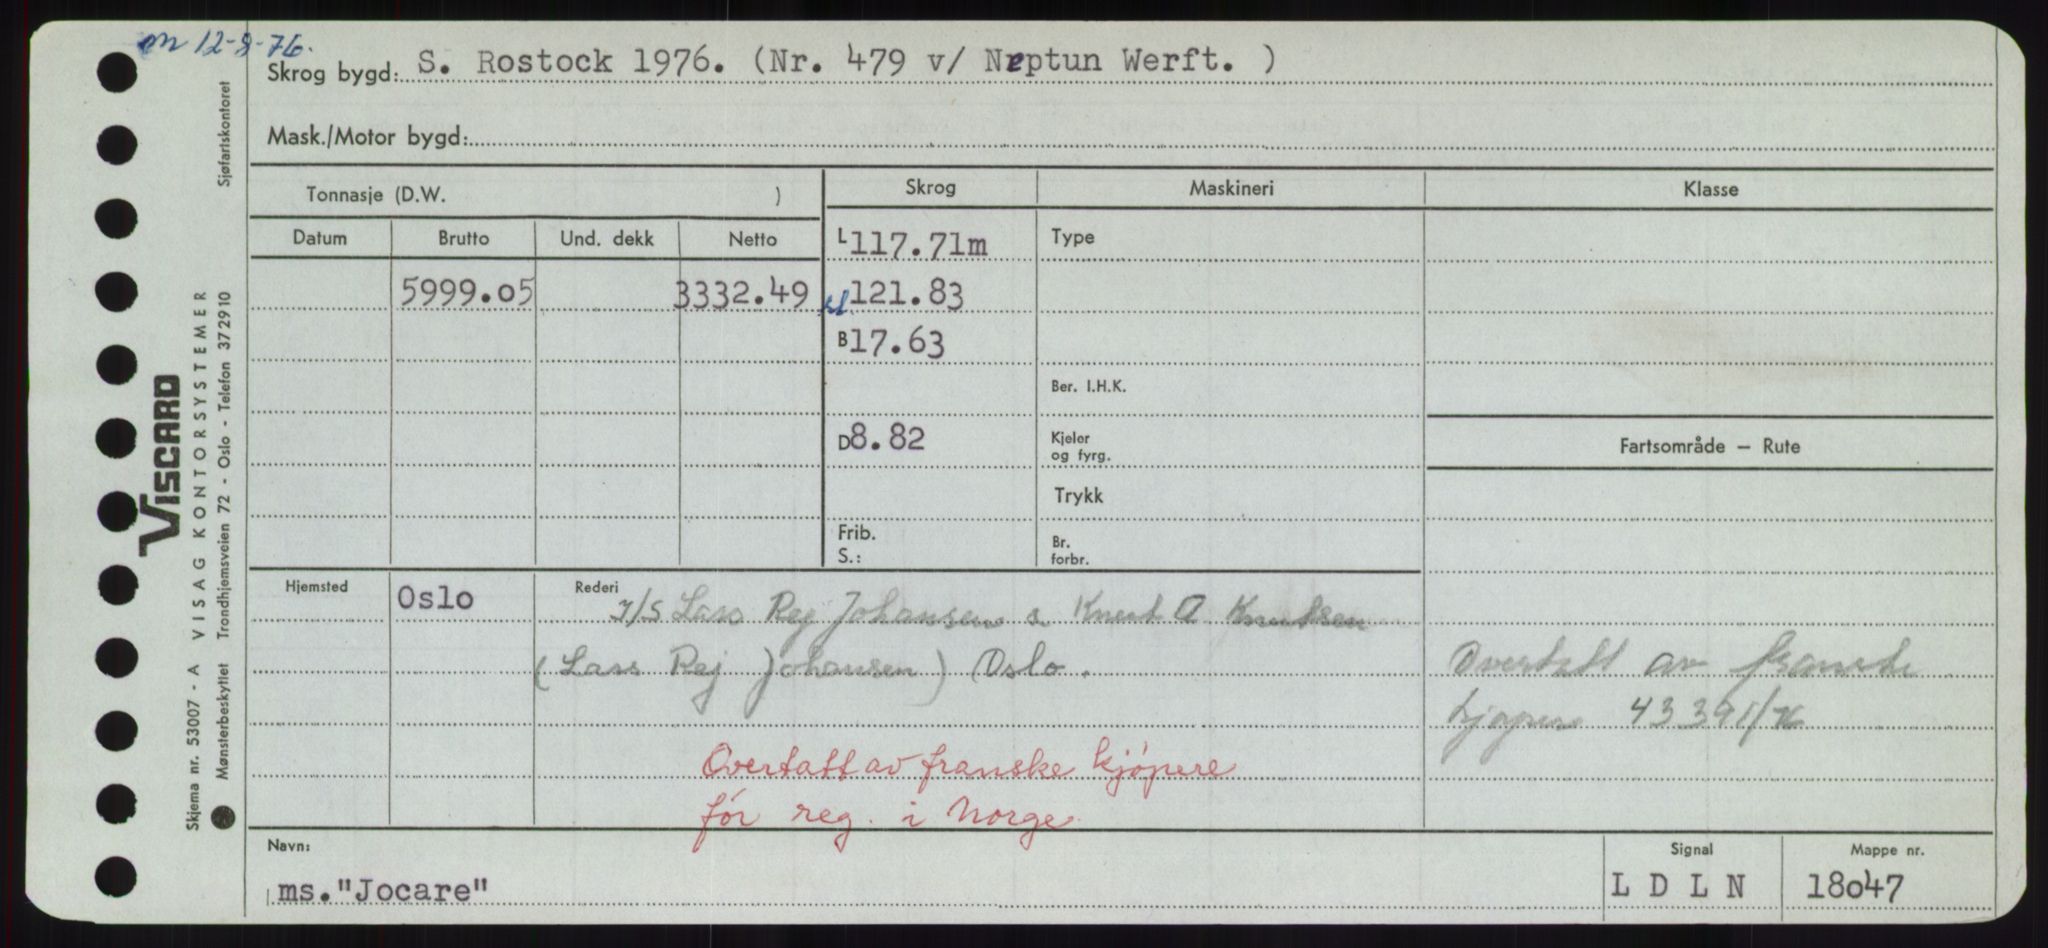 m 12-8-76.
Skrog bygd: S. Rostock 1976. (Nr. 479 v/ Neptun Werft. )
Mask./Motor bygd:
Tonnasje (D.W. ) Skrog Maskineri Klasse
Datum Brutto Und. dekk Netto L 117.71m Type
5999.05 3332.49 121.83
B 17.63
Ber. I.H.K.
D 8.82 Kjeler
og fyrg.
Fartsområde — Rute
Trykk
Frib.
S.:
Br.
forbr.
Hjemsted Oslo Rederi I/S Lass Rej Johansen & Knut A Knutsen
(Lass Rej Johansen) Oslo.
Overtatt av franske
kjøpere 43391/76
Overtatt av franske kjøpere
før reg. i Norge.
Navn: Signal Mappe nr.
ms."Jocare" L D L N 18047
Sjøfartskontoret
VISCARD
VISAG KONTORSYSTEMER
Trondhjemsveien 72 - Oslo - Telefon 372910
Skjema nr. 53007 - A
Mønsterbeskyttet